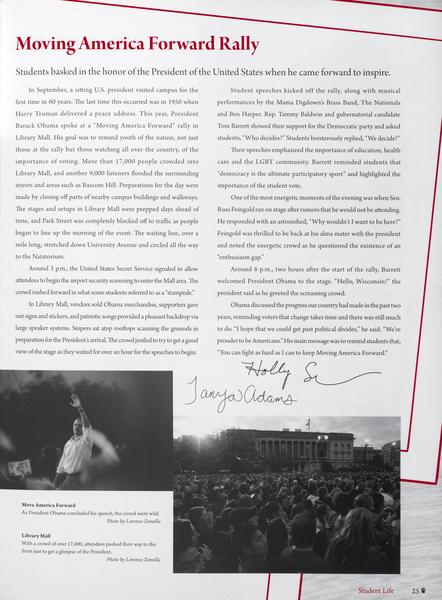 Moving America Forward Rally
Students basked in the honor of the President of the United States when he came forward to inspire.
In September, a sitting U.S. president visited campus for the
first time in 60 years. The last time this occurred was in 1950 when
Harry Truman delivered a peace address. This year, President
Barack Obama spoke at a "Moving America Forward" rally in
Library Mall. His goal was to remind youth of the nation, not just
those at the rally but those watching all over the country, of the
importance of voting. More than 17,000 people crowded into
Library Mall, and another 9,000 listeners flooded the surrounding
streets and areas such as Bascom Hill. Preparations for the day were
made by closing off parts of nearby campus buildings and walkways.
The stages and setups in Library Mall were prepped days ahead of
time, and Park Street was completely blocked off to traffic as people
began to line up the morning of the event. The waiting line, over a
mile long, stretched down University Avenue and circled all the way
to the Natatorium.
Around 3 p.m., the United States Secret Service signaled to allow
attendees to begin the airport security screening to enter the Mall area. The
crowd rushed forward in what some students referred to as a "stampede."
In Library Mall, vendors sold Obama merchandise, supporters gave
out signs and stickers, and patriotic songs provided a pleasant backdrop via
large speaker systems. Snipers sat atop rooftops scanning the grounds in
preparation for the President's arrival. The crowd jostled to try to get a good
view of the stage as they waited for over an hour for the speeches to begin.
Student speeches kicked off the rally, along with musical
performances by the Mama Digdown's Brass Band, The Nationals
and Ben Harper. Rep. Tammy Baldwin and gubernatorial candidate
Tom Barrett showed their support for the Democratic party and asked
students, "Who decides?" Students boisterously replied, "We decide!"
Their speeches emphasized the importance of education, health
care and the LGBT community. Barrett reminded students that
"democracy is the ultimate participatory sport" and highlighted the
importance of the student vote.
One of the most energetic moments of the evening was when Sen.
Russ Feingold ran on stage after rumors that he would not be attending.
He responded with an astonished, "Why wouldn't I want to be here?"
Feingold was thrilled to be back at his alma mater with the president
and noted the energetic crowd as he questioned the existence of an
"enthusiasm gap."
Around 6 p.m., two hours after the start of the rally, Barrett
welcomed President Obama to the stage. "Hello, Wisconsin!" the
president said as he greeted the screaming crowd.
Obama discussed the progress our country had made in the past two
years, reminding voters that change takes time and there was still much
to do. "I hope that we could get past political divides," he said. "We're
prouder to be Americans." His main message was to remind students that,
"You can fight as hard as I can to keep Moving America Forward."
Holly
Tanya Adams
Move America Forward
As President Obama concluded his speech, the crowd went wild.
Photo by Lorenzo Zemella
Library Mall
With a crowd of over 17,000, attendees pushed their way to the
front just to get a glimpse of the President.
Photo by Lorenzo Zemella
Student Life 25